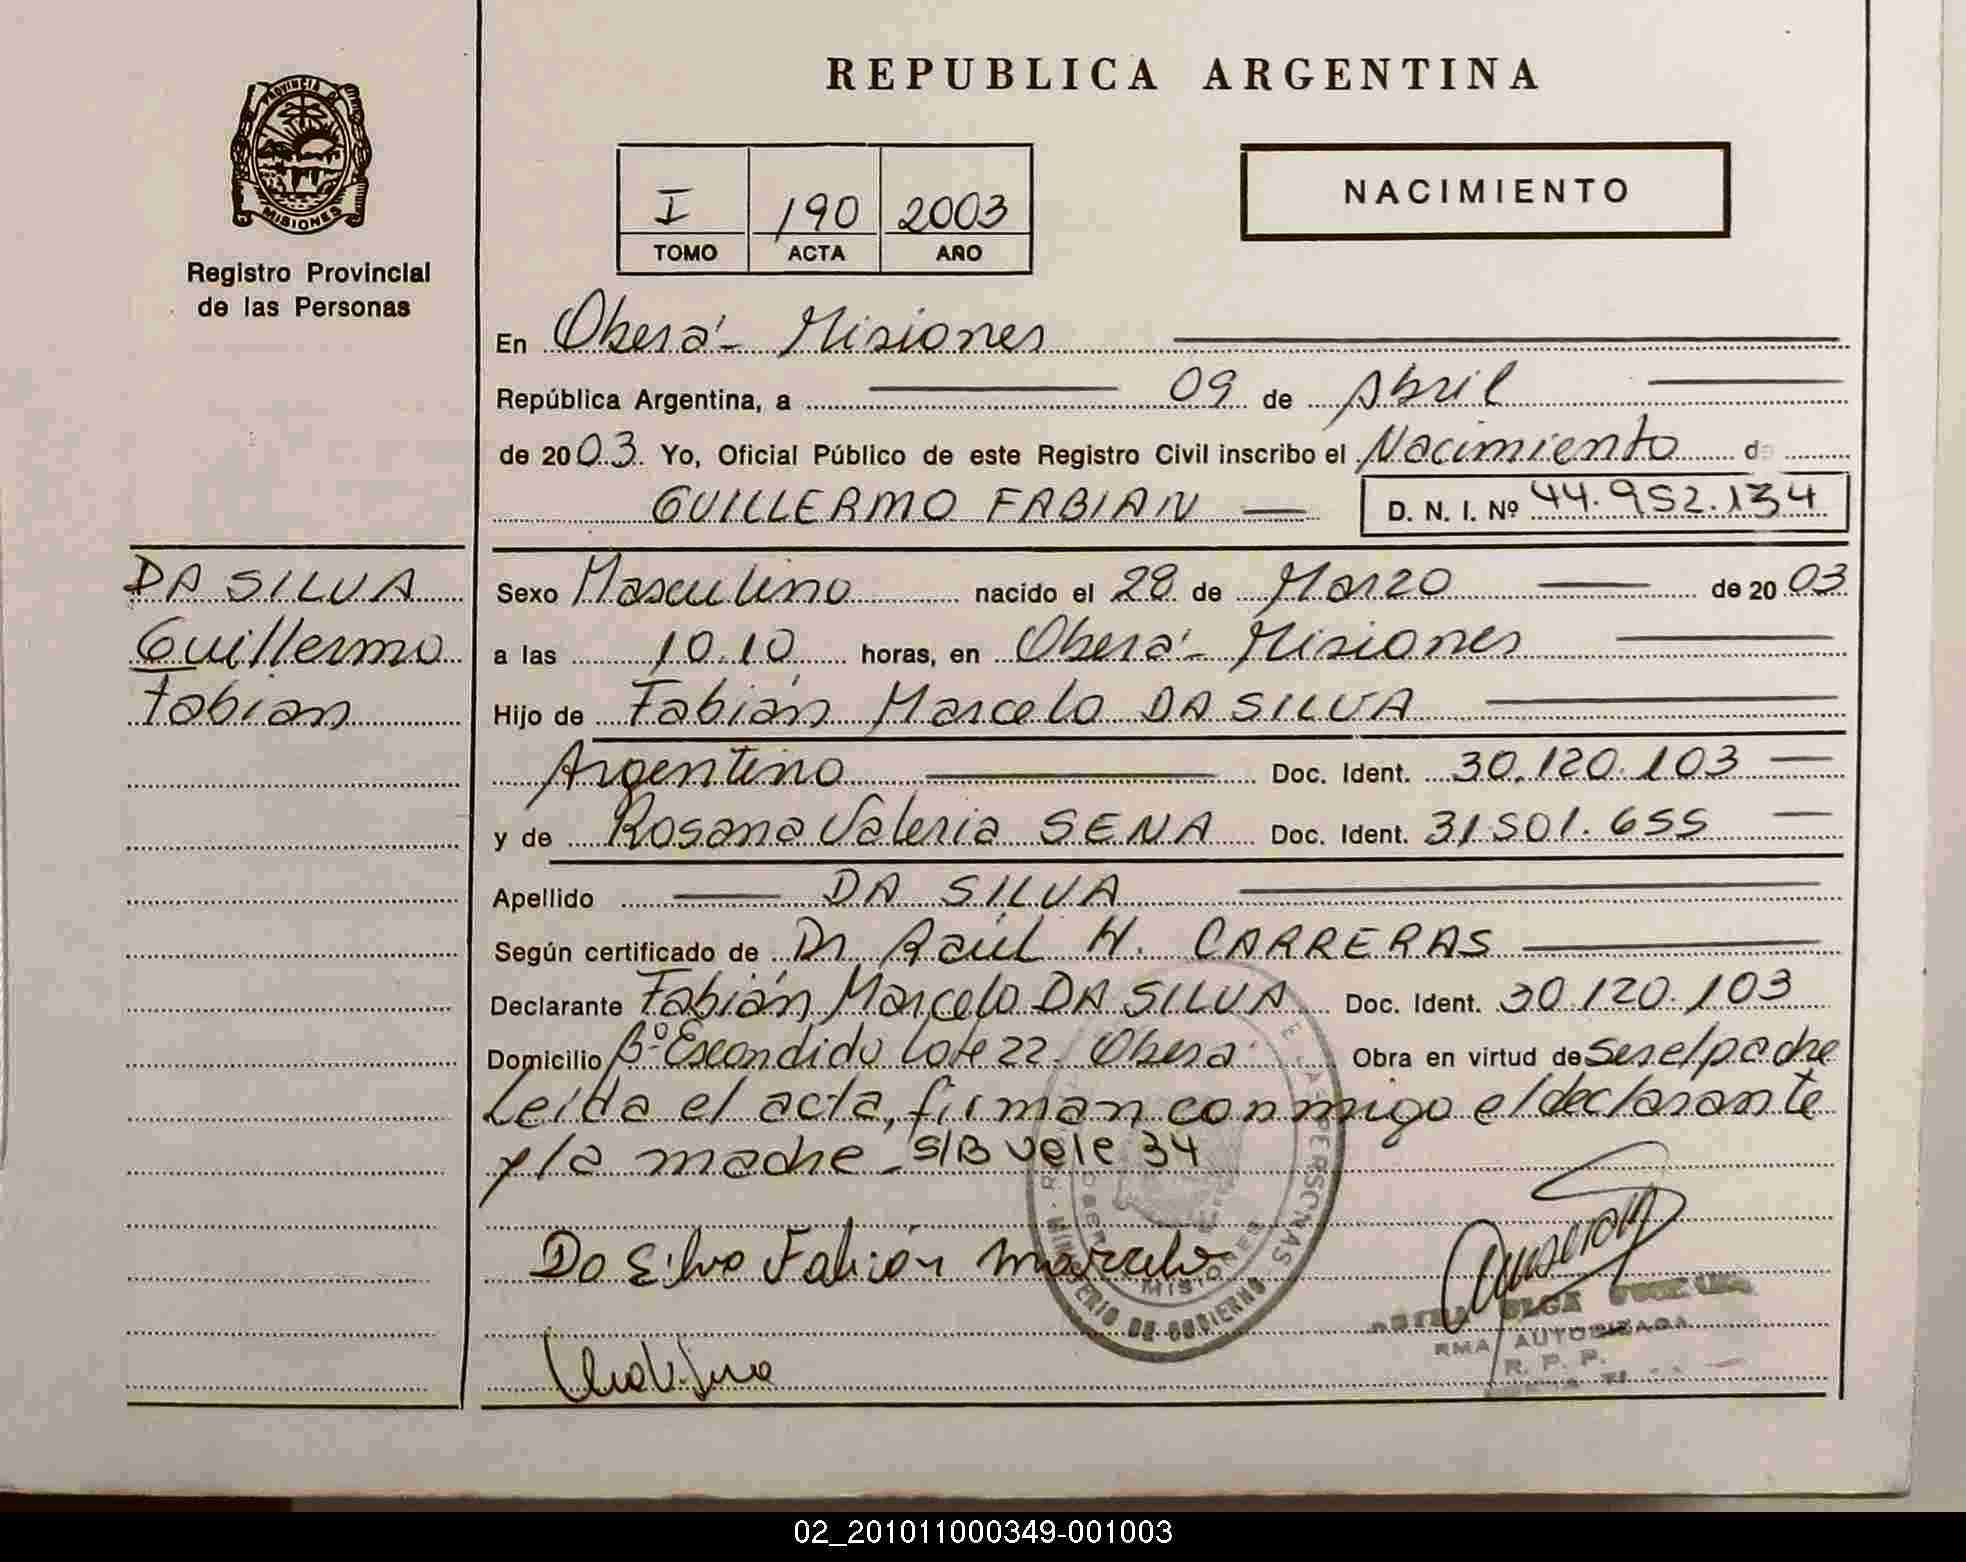 REPUBLICA ARGENTINA
PROVINCIA DE
MISIONES
Registro Provincial
de las Personas
I 190 2003
TOMO ACTA AÑO
NACIMIENTO
En Oberá - Misiones
República Argentina, a 09 de Abril
de 2003 Yo, Oficial Público de este Registro Civil inscribo el Nacimiento de
GUILLERMO FABIAN
D. N. I. Nº 44.952.134
DA SILVA
Guillermo
Fabian
Sexo Masculino nacido el 28 de Marzo de 2003
a las 10.10 horas, en Oberá - Misiones
Hijo de Fabián Marcelo DA SILVA
Argentino Doc. Ident. 30.120.103
y de Rosana Valeria SENA Doc. Ident. 31501.655
Apellido DA SILVA
Según certificado de Dr Raúl H. CARRERAS
Declarante Fabián Marcelo DA SILVA Doc. Ident. 30.120.103
Domicilio Bº Escondido Lote 22. Oberá Obra en virtud de Ser el padre
Leída el acta, firman conmigo el declarante
y la madre - S/B Vale 34
Da Silva Fabián Marcelo
MISIONES
MINISTERIO DE GOBIERNO
PERSONAS
OLGA
RMA AUTORIZADA
R. P. P.
02_201011000349-001003